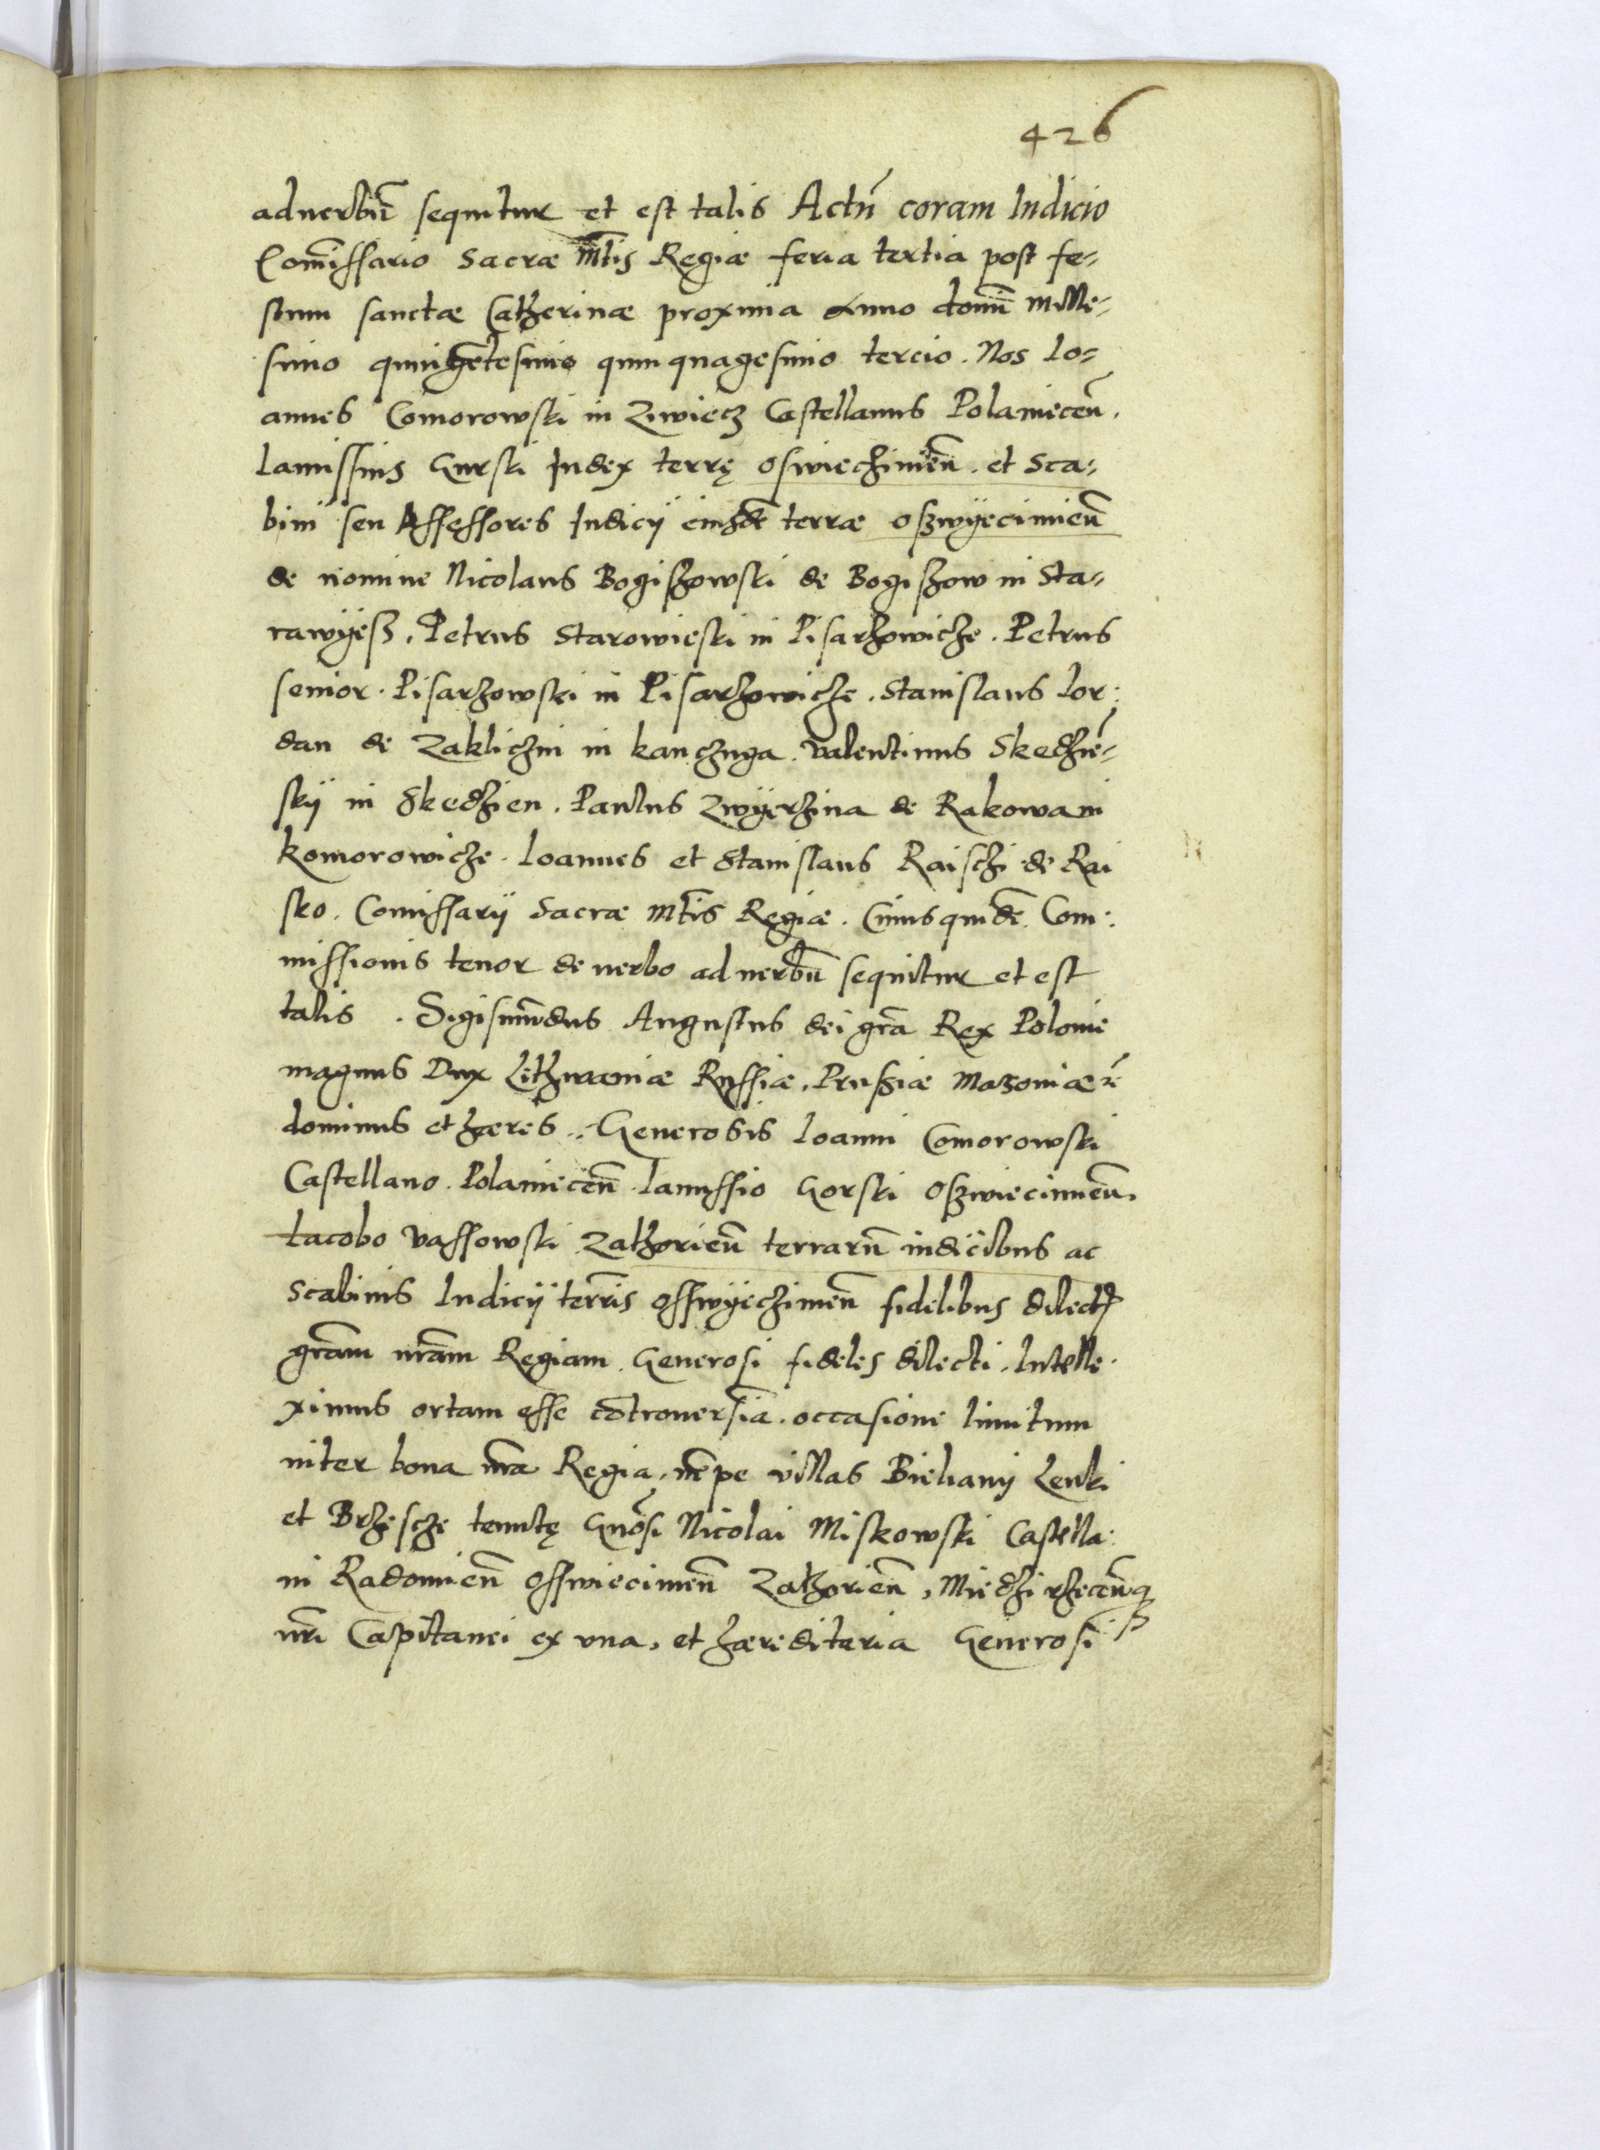 426
aduerbũ sequitur et est talis Actũ coram Iudicio
Com̃issario Sacræ Mt̃is Regiæ feria tertia post fe-
stum sanctæ Catherinæ proxima Anno domĩ Mille-
simo quinḡetesimo quinquagesimo tercio. Nos Io-
annes Comorowski in Ziwiecz Castellanus Polanieceñ.
Ianissius Gurski Iudex terrę Oswiechimeñ. et Sca-
bini seu Assessores Iudicij eiusdẽ terræ Oszwÿecimieñ
de nomine Nicolaus Bogiszowski de Bogiszow in Sta-
rawÿesz. Petrus Starowieski in Pisarzowicze. Petrus
senior. Pisarzowski in Pisarzowicze. Stanislaus Ior:
dan de Zakliczin in Kanczuga. Valentinus Skedzẽ-
skij in Skedzien. Paulus Zwÿerzina de Rakowa in
Komorowicze. Ioannes et Stanislaus Raischi de Rai
sko. Comissarij Sacræ Mt̃is Regiæ. Cuius quidẽ. Com:
missionis tenor de uerbo ad uerbũ sequitur et est
talis. Sigismũdus Augustus dei gr̃a Rex Polonie
magnus Dux Lithuaniæ Russiæ. Prusziæ Mazouiæ ẽ
dominus et hæres. Generosis Ioanni Comorowski
Castellano. Polanieceñ. Ianussio Gorski Oszwiecimeñ.
Iacobo Vassowski Zathorieñ terrarũ iudicibus ac
Scabinis Iudicij terr̃is Osswÿechimeñ fidelibus dilect̃
gr̃am nr̃am Regiam. Generosi fideles dilecti. Intelle-
ximus ortam esse cõtrouersiã. occasione limitum
inter bona nr̃a Regia. nẽpe villas Bieliany Lenki
et Brzescze tenutę Gnõsi Nicolai Miskowski Castella:
ni Radomieñ Osswiecimeñ Zathorieñ, Miedzirzeceñq̃
nr̃i Capitanei ex vna, et hæreditaria Generosi